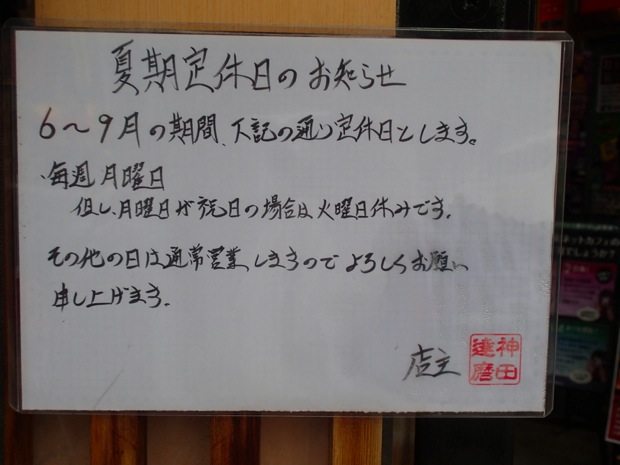 夏期定休日のお知らせ
6～9月の期間、下記の通り定休日とします。
・毎週月曜日
但し、月曜日が祝日の場合は火曜日休みです。
その他の日は通常営業しますのでよろしくお願い
申し上げます。
店主
神田
達磨
ネットカフェの